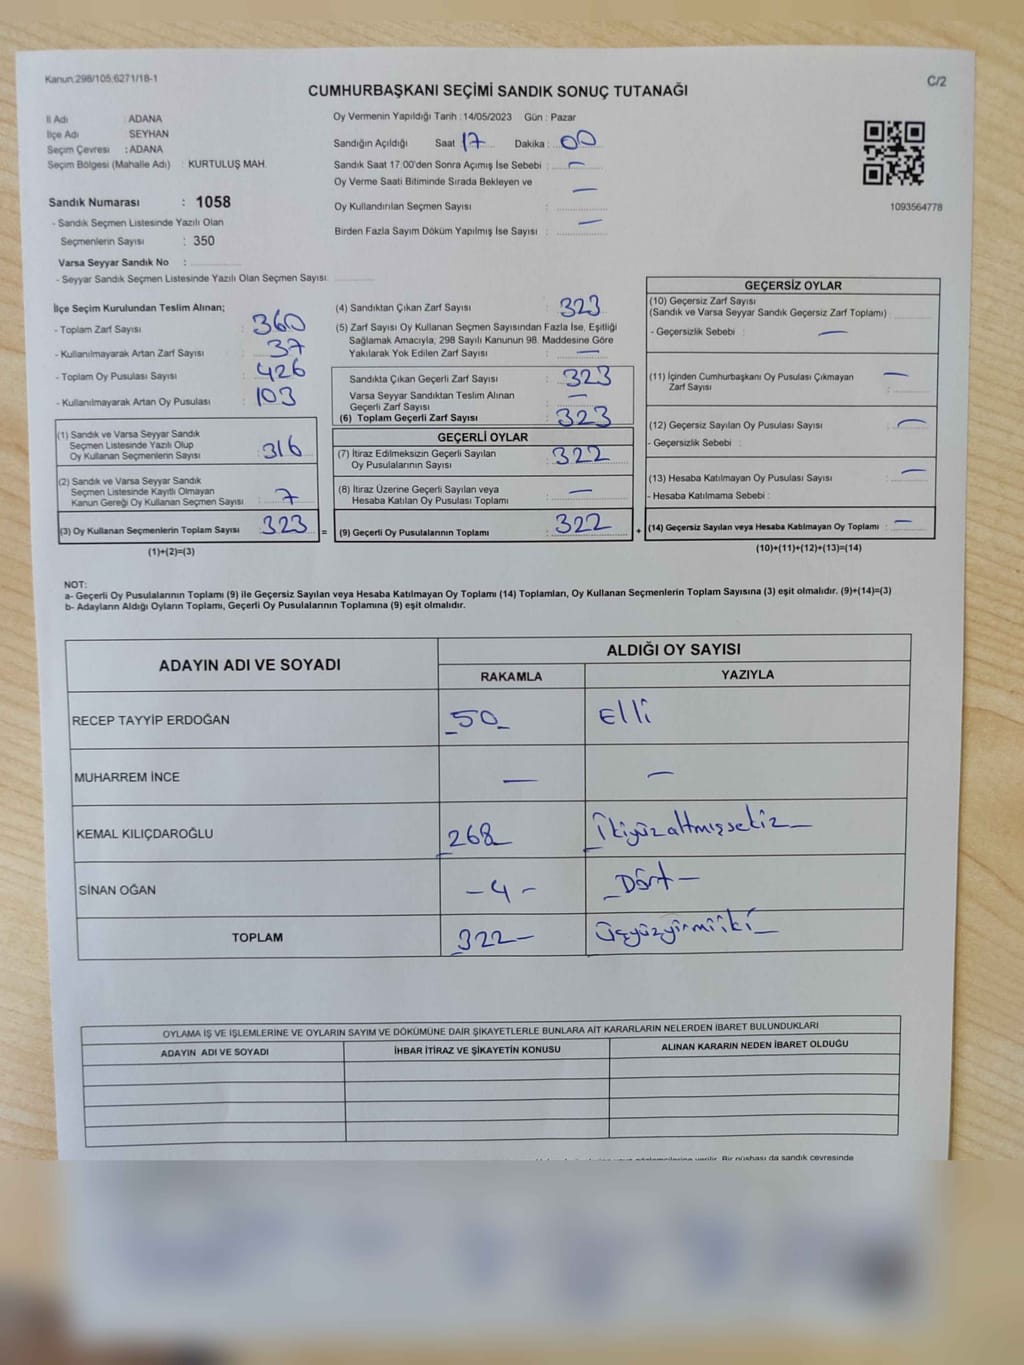 Kanun:298/105,6271/18-1
C/2
CUMHURBAŞKANI SEÇİMİ SANDIK SONUÇ TUTANAĞI
İl Adı : ADANA
İlçe Adı : SEYHAN
Seçim Çevresi : ADANA
Seçim Bölgesi (Mahalle Adı) : KURTULUŞ MAH.
Sandık Numarası : 1058
- Sandık Seçmen Listesinde Yazılı Olan
Seçmenlerin Sayısı : 350
Varsa Seyyar Sandık No :
- Seyyar Sandık Seçmen Listesinde Yazılı Olan Seçmen Sayısı:
Oy Vermenin Yapıldığı Tarih : 14/05/2023 Gün : Pazar
Sandığın Açıldığı Saat : 17 Dakika : 00
Sandık Saat 17:00'den Sonra Açımış İse Sebebi : —
Oy Verme Saati Bitiminde Sırada Bekleyen ve —
Oy Kullandırılan Seçmen Sayısı :
Birden Fazla Sayım Döküm Yapılmış İse Sayısı : —
1093564778
İlçe Seçim Kurulundan Teslim Alınan;
- Toplam Zarf Sayısı : 360
- Kullanılmayarak Artan Zarf Sayısı : 37
- Toplam Oy Pusulası Sayısı : 426
- Kullanılmayarak Artan Oy Pusulası : 103
(1) Sandık ve Varsa Seyyar Sandık
Seçmen Listesinde Yazılı Olup
Oy Kullanan Seçmenlerin Sayısı : 316
(2) Sandık ve Varsa Seyyar Sandık
Seçmen Listesinde Kayıtlı Olmayan
Kanun Gereği Oy Kullanan Seçmen Sayısı : 7
(3) Oy Kullanan Seçmenlerin Toplam Sayısı : 323 =
(1)+(2)=(3)
(4) Sandıktan Çıkan Zarf Sayısı : 323
(5) Zarf Sayısı Oy Kullanan Seçmen Sayısından Fazla İse, Eşitliği
Sağlamak Amacıyla, 298 Sayılı Kanunun 98. Maddesine Göre
Yakılarak Yok Edilen Zarf Sayısı : —
Sandıkta Çıkan Geçerli Zarf Sayısı : 323
Varsa Seyyar Sandıktan Teslim Alınan —
Geçerli Zarf Sayısı :
(6) Toplam Geçerli Zarf Sayısı : 323
GEÇERLİ OYLAR
(7) İtiraz Edilmeksizin Geçerli Sayılan 322
Oy Pusulalarının Sayısı :
(8) İtiraz Üzerine Geçerli Sayılan veya —
Hesaba Katılan Oy Pusulası Toplamı :
(9) Geçerli Oy Pusulalarının Toplamı : 322 +
GEÇERSİZ OYLAR
(10) Geçersiz Zarf Sayısı
(Sandık ve Varsa Seyyar Sandık Geçersiz Zarf Toplamı) :
- Geçersizlik Sebebi : —
(11) İçinden Cumhurbaşkanı Oy Pusulası Çıkmayan —
Zarf Sayısı :
(12) Geçersiz Sayılan Oy Pusulası Sayısı : —
- Geçersizlik Sebebi :
(13) Hesaba Katılmayan Oy Pusulası Sayısı : —
- Hesaba Katılmama Sebebi :
(14) Geçersiz Sayılan veya Hesaba Katılmayan Oy Toplamı : —
(10)+(11)+(12)+(13)=(14)
NOT:
a- Geçerli Oy Pusulalarının Toplamı (9) ile Geçersiz Sayılan veya Hesaba Katılmayan Oy Toplamı (14) Toplamları, Oy Kullanan Seçmenlerin Toplam Sayısına (3) eşit olmalıdır. (9)+(14)=(3)
b- Adayların Aldığı Oyların Toplamı, Geçerli Oy Pusulalarının Toplamına (9) eşit olmalıdır.
ADAYIN ADI VE SOYADI ALDIĞI OY SAYISI
RAKAMLA YAZIYLA
RECEP TAYYİP ERDOĞAN _50_ Elli
MUHARREM İNCE — —
KEMAL KILIÇDAROĞLU _268_ _İkiyüzaltmışsekiz_
SİNAN OĞAN -4- _Dört-
TOPLAM 322- Üçyüzyirmiiki_
OYLAMA İŞ VE İŞLEMLERİNE VE OYLARIN SAYIM VE DÖKÜMÜNE DAİR ŞİKAYETLERLE BUNLARA AİT KARARLARIN NELERDEN İBARET BULUNDUKLARI
ADAYIN ADI VE SOYADI İHBAR İTİRAZ VE ŞİKAYETİN KONUSU ALINAN KARARIN NEDEN İBARET OLDUĞU
verilir. Bir nüshası da sandık çevresinde